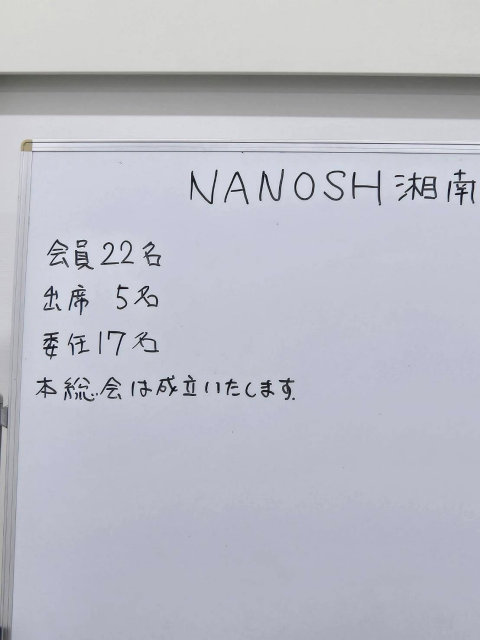 NANOSH湘南
会員22名
出席 5名
委任17名
本総会は成立いたします.